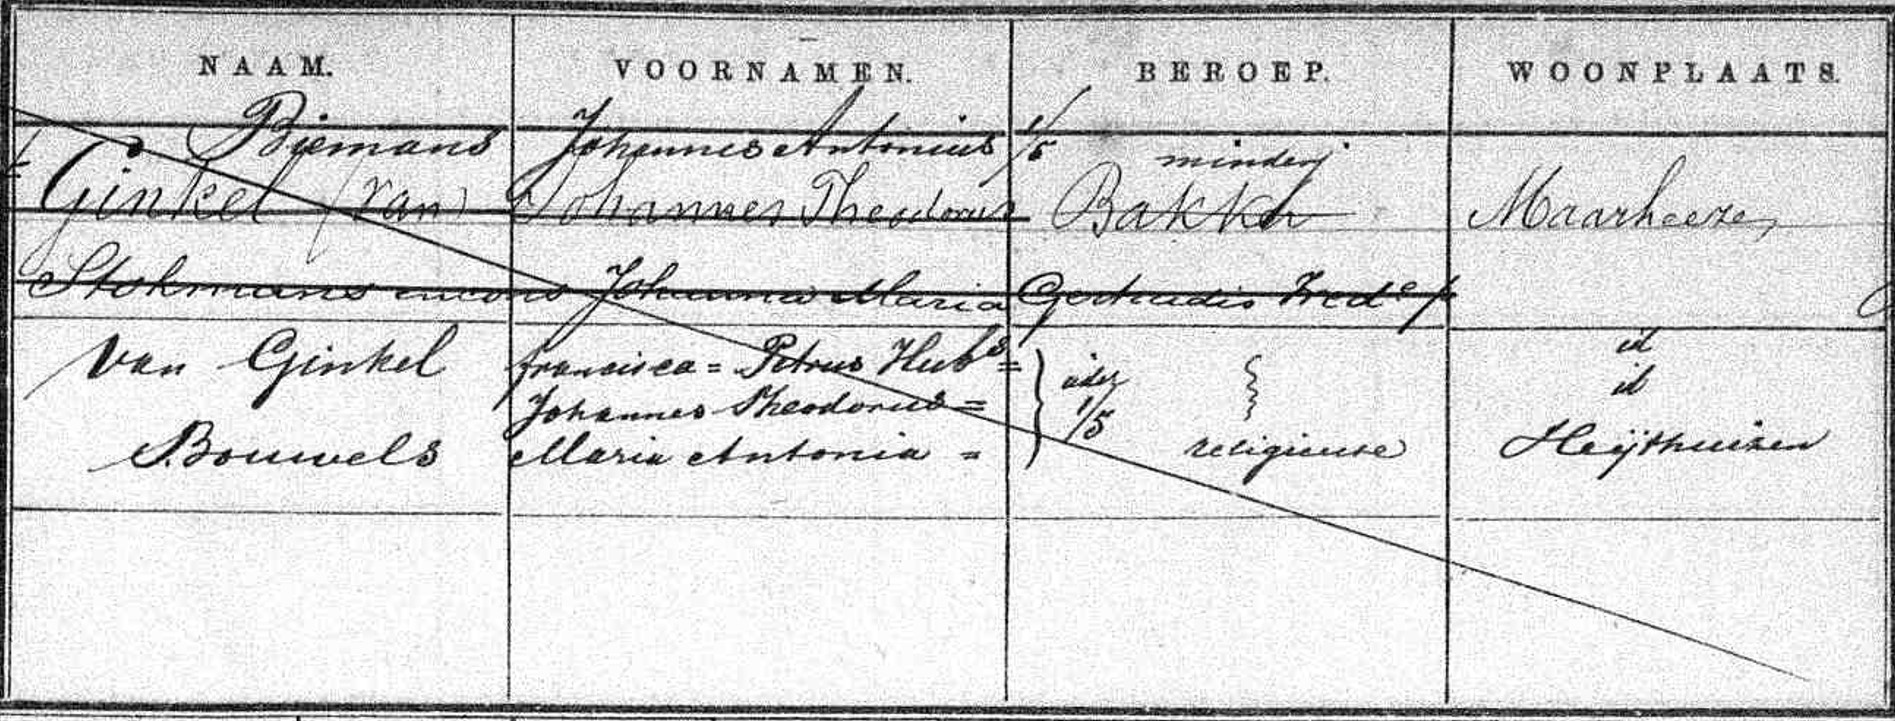 NAAM. VOORNAMEN. BEROEP. WOONPLAATS.
Biemans Johannes Antonius 1/5 minderj
Ginkel (van) Johannes Theodorus Bakker Maarheeze,
Stokmans Johanna Maria Gertrudis Fred^e
van Ginkel francisca = Petrus Hub^s = id
Johannes Theodorus = 1/5 id
Bouwels Maria Antonia = religieuse Heijthuizen